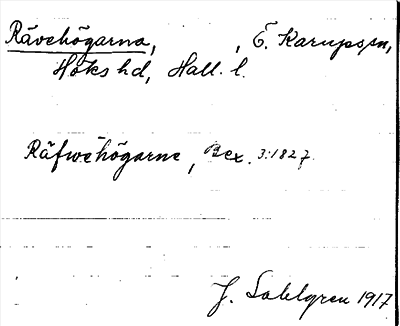 Rävehögarna, , Ö. Karups sn,
Höks hd, Hall. l.
Räfwehögarne, Bex. 3:1827.
J. Sahlgren 1917